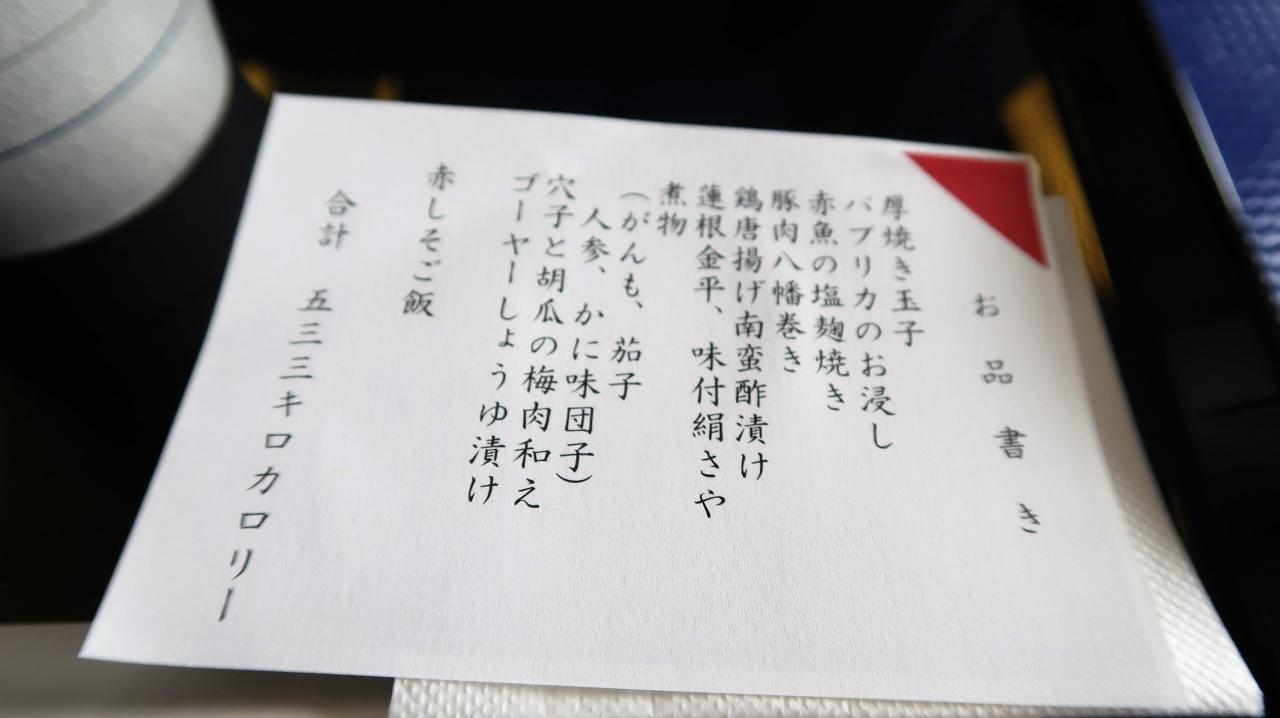 お品書き
厚焼き玉子
パプリカのお浸し
赤魚の塩麹焼き
豚肉八幡巻き
鶏唐揚げ南蛮酢漬け
蓮根金平、味付絹さや
煮物
（がんも、茄子
人参、かに味団子）
穴子と胡瓜の梅肉和え
ゴーヤーしょうゆ漬け
赤しそご飯
合計 五三三キロカロリー